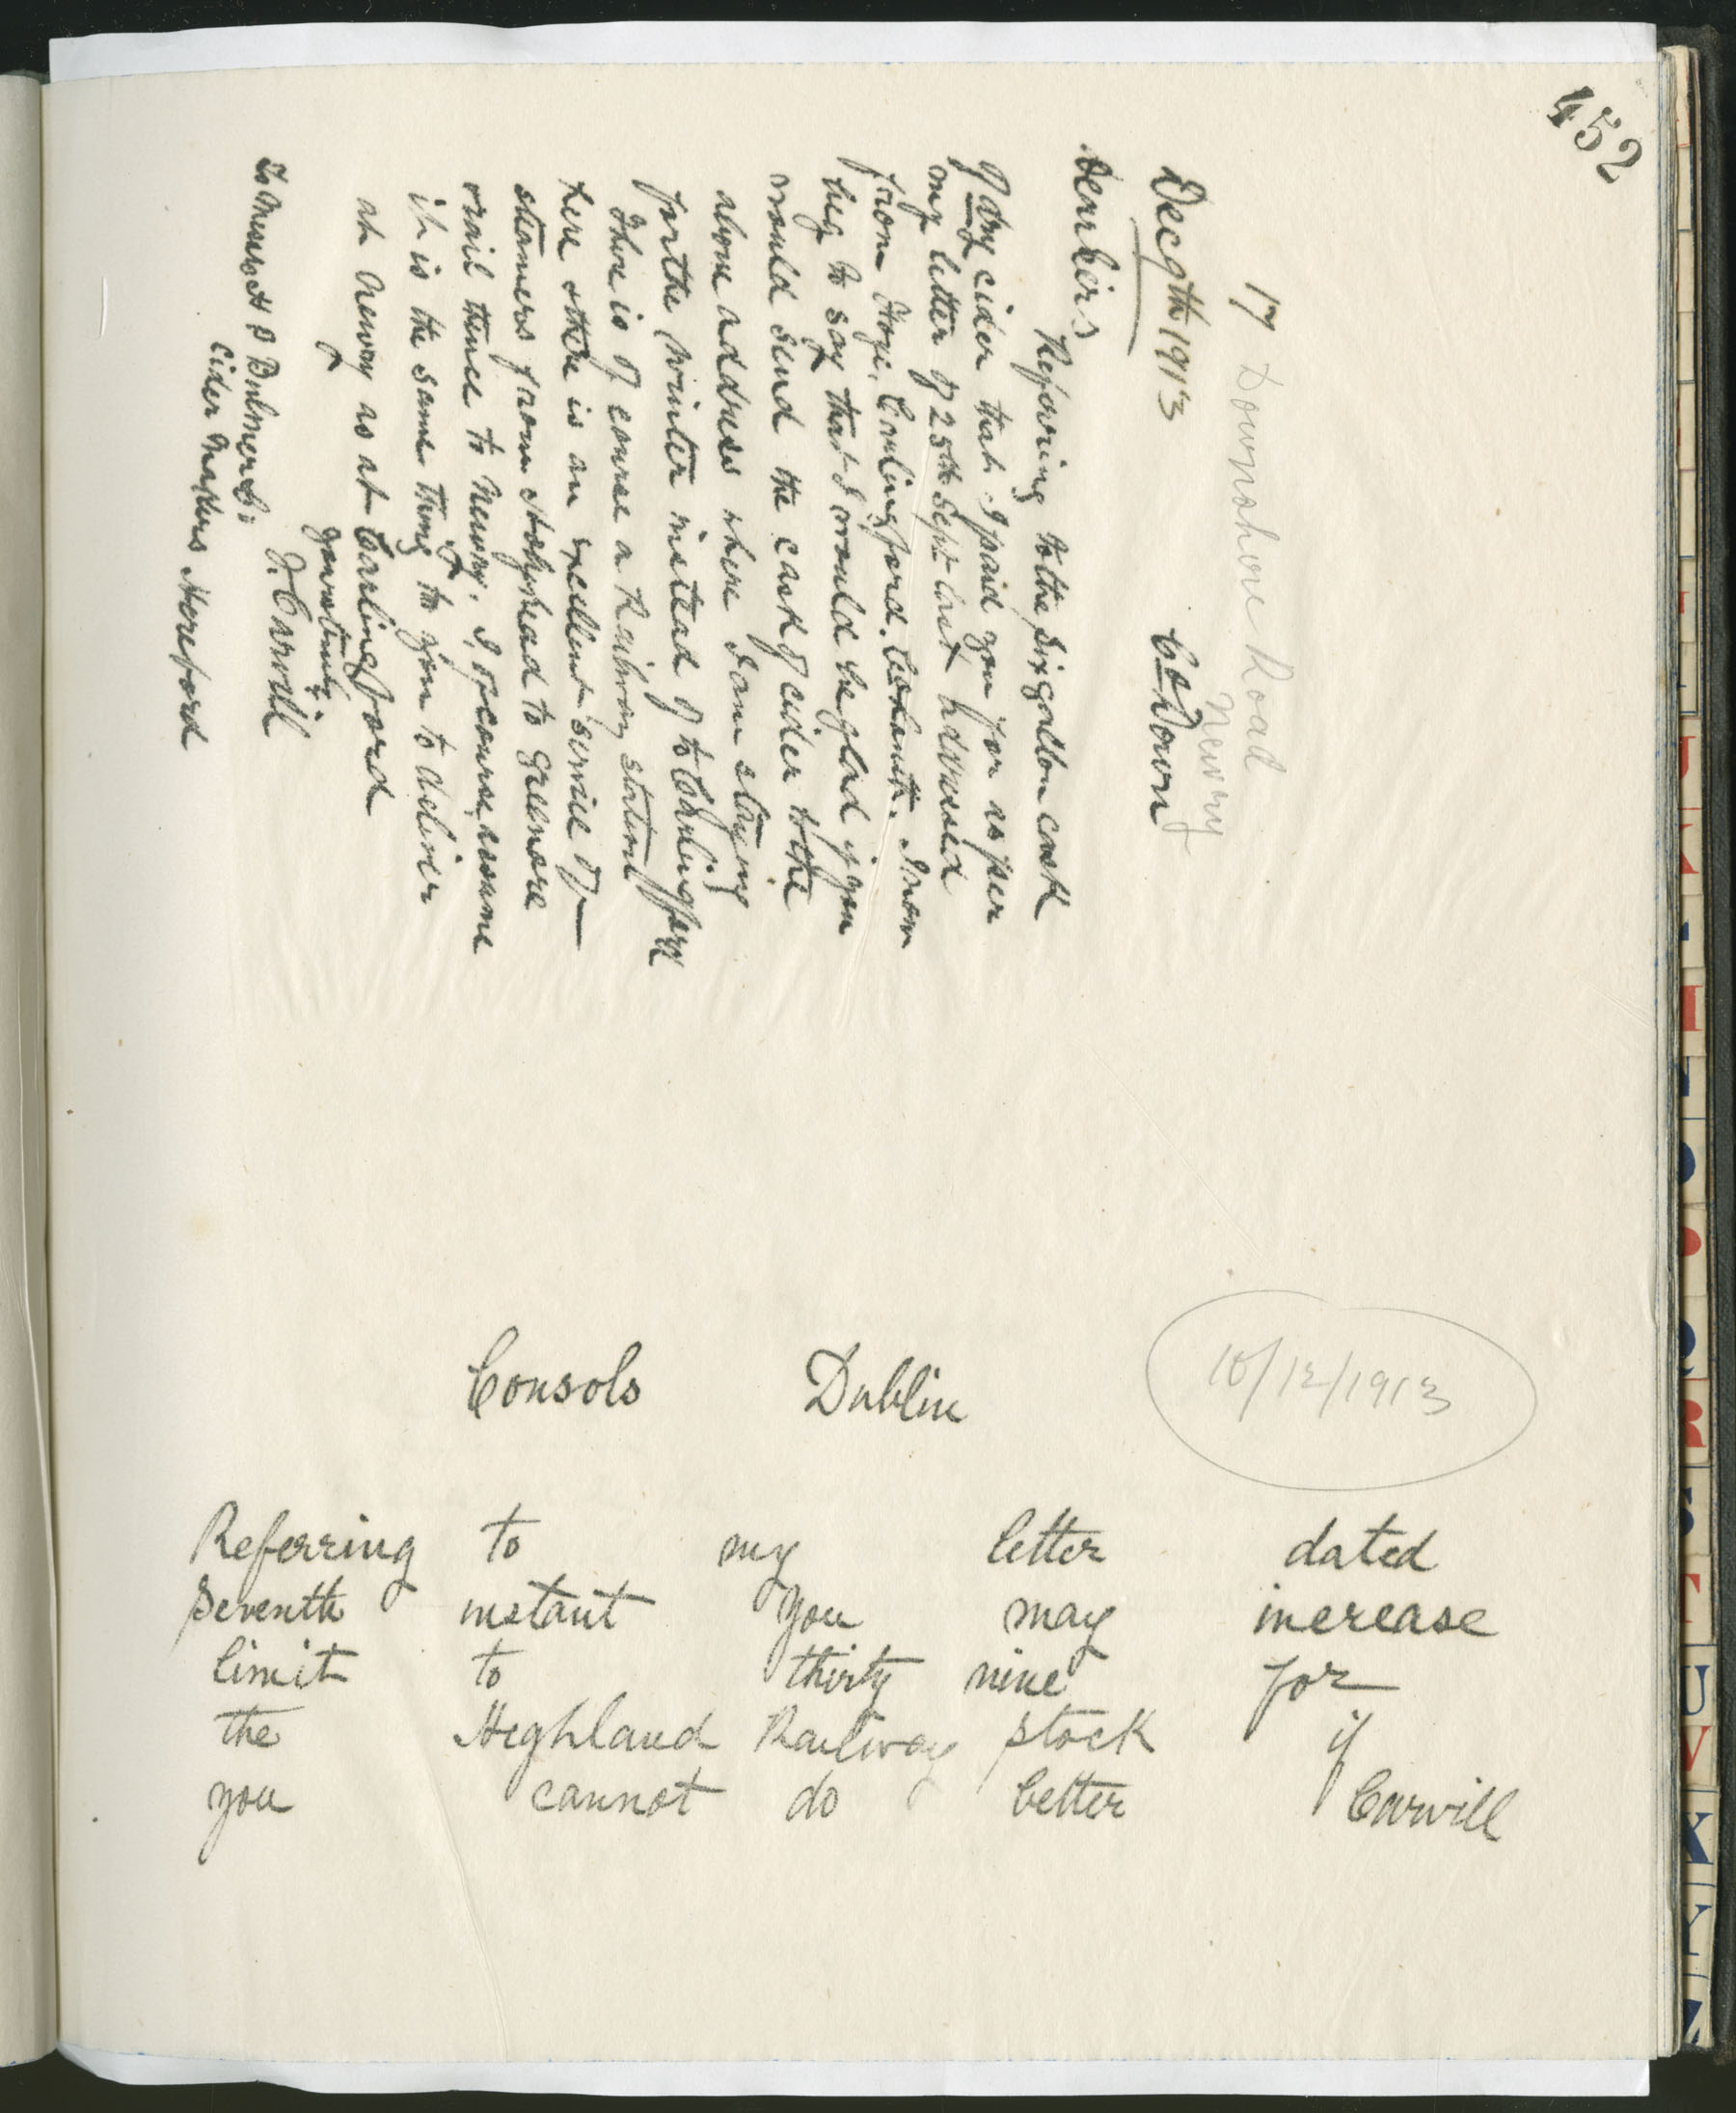 452
17 Downshire Road
Newry
Dec 9th 1913 Co Down
Dear Sirs
Referring to the six gallon cask
of dry cider that I paid you for as per
my letter of 25th Sept last addressed
from Carlingford. Co Louth. I now
beg to say that I would be glad if you
would send the cask of cider to the
above address where I am staying
for the winter instead of to Carlingford
There is of course a Railway station
here & there is an excellent service of
steamers from Holyhead to Greenore
& rail thence to Newry. I, of course, assume
it is the same thing to you to deliver
at Newry as at Carlingford
Yours truly
J. Carvill
To Messrs H P Bulmer & Co
Cider Makers Hereford
Consols Dublin
10/12/1913
Referring to my letter dated
seventh instant you may increase
limit to thirty nine for
the Highland Railway stock if
you cannot do better Carvill